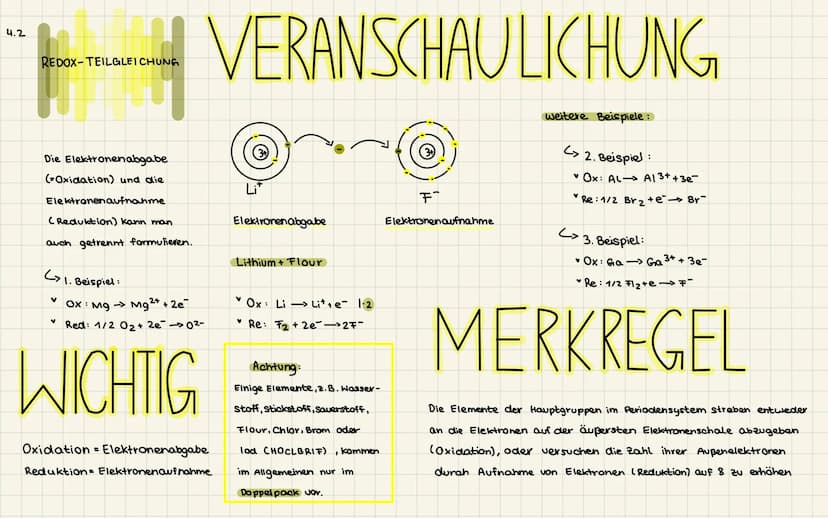 4.2
REDOX-TEILGLEICHUNG
VERANSCHAULICHUNG
Die Elektronenabgabe
(=Oxidation) und die
Elektronenaufnahme
(Reduktion) kann man
auch getrennt formulieren.
↳ 1. Beispiel:
Ox: Mg → Mg²⁺ + 2e⁻
Red: 1/2 O₂ + 2e⁻ → O²⁻
3+
Li⁺
Elektronenabgabe
-
3+
F⁻
Elektronenaufnahme
Lithium + Flour
Ox: Li → Li⁺ + e⁻ |·2
Re: F₂ + 2e⁻ → 2F⁻
weitere Beispiele:
↳ 2. Beispiel:
Ox: Al → Al³⁺ + 3e⁻
Re: 1/2 Br₂ + e⁻ → Br⁻
↳ 3. Beispiel:
Ox: Ga → Ga³⁺ + 3e⁻
Re: 1/2 Fl₂ + e → F⁻
WICHTIG
Oxidation = Elektronenabgabe
Reduktion = Elektronenaufnahme
Achtung:
Einige Elemente, z.B. Wasser-
stoff, Stickstoff, Sauerstoff,
Flour, Chlor, Brom oder
Iod (HOCLBRIF), kommen
im Allgemeinen nur im
Doppelpack vor.
MERKREGEL
Die Elemente der Hauptgruppen im Periodensystem streben entweder
an die Elektronen auf der äußersten Elektronenschale abzugeben
(Oxidation), oder versuchen die Zahl ihrer Außenelektronen
durch Aufnahme von Elektronen (Reduktion) auf 8 zu erhöhen